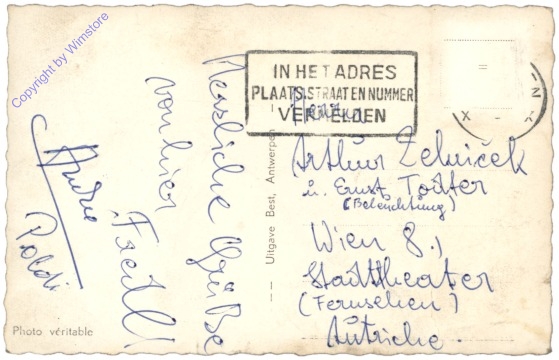 Copyright by Wimstore
Herzliche Grüße
von hier
Fredl
Andre
Poldi
Photo véritable
Uitgave Best, Antwerpen
IN HET ADRES
PLAATS, STRAAT EN NUMMER
VERMELDEN
Herrn
Arthur Zelnicek
u. Ernst Totter
(Beleuchtung)
Wien 8.,
Stadttheater
(Fernsehen)
Autriche.